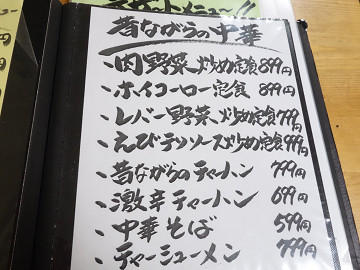 昔ながらの中華
・肉野菜炒め定食 899円
・ホイコーロー定食 899円
・レバー野菜炒め定食 799円
・えびチリソース炒め定食 999円
・昔ながらのチャーハン 799円
・激辛チャーハン 699円
・中華そば 599円
・チャーシューメン 799円